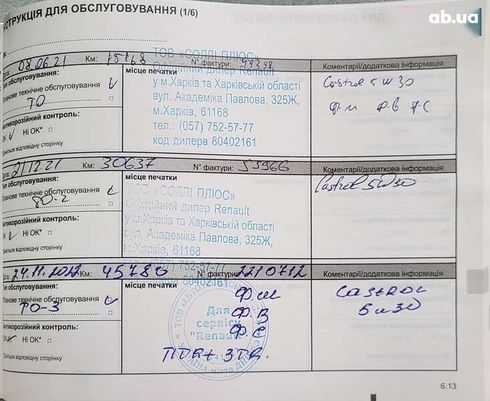 ab.ua
СТРУКЦІЯ ДЛЯ ОБСЛУГОВУВАННЯ (1/6)
08.06.21 Км: 15168 N° фактури:
Коментарі/додаткова інформація
п обслуговування:
місце печатки
ТОВ «СОЛЛІ ПЛЮС»
Офіційний дилер Renault
у м.Харків та Харківській області
вул. Академіка Павлова, 325Ж,
м.Харків, 61168
тел.: (057) 752-57-77
код дилера 80402161
анове технічне обслуговування
ТО
нтикорозійний контроль:
Ні ОК*
Castrol 5W30
ФМ ФВ ФС
21.12.21 Км: 30637 N° фактури: 53966
Коментарі/додаткова інформація
п обслуговування:
місце печатки
ТОВ «СОЛЛІ ПЛЮС»
Офіційний дилер Renault
у м.Харків та Харківській області
вул. Академіка Павлова, 325Ж,
м.Харків, 61168
(057) 752-57-77
80402161
анове технічне обслуговування
ТО-2
нтикорозійний контроль:
Ні ОК*
ється відповідну сторінку
Castrol 5W30
24.11.2022 Км: 45786 N° фактури: 2210712
Коментарі/додаткова інформація
п обслуговування:
місце печатки
анове технічне обслуговування
ТО-3
нтикорозійний контроль:
Ні ОК*
ється відповідну сторінку
Для
сервісу
"Renault"
Ф.М
Ф.В
Ф.С
CASTROL
5W30
6.13